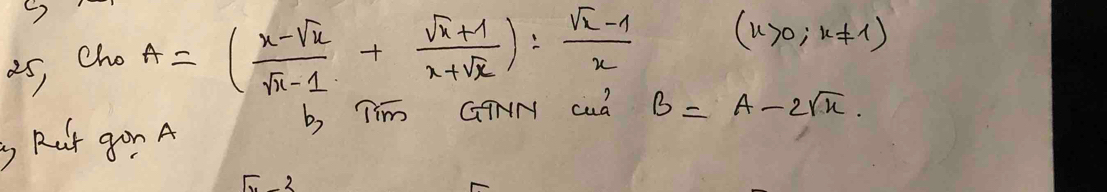 25, Cho A = ( (x - √x)/(√x - 1) + (√x + 1)/(x + √x) ) : (√x - 1)/x (x>0; x≠1)
a, Rút gọn A b, Tìm GTNN của B = A - 2√x.